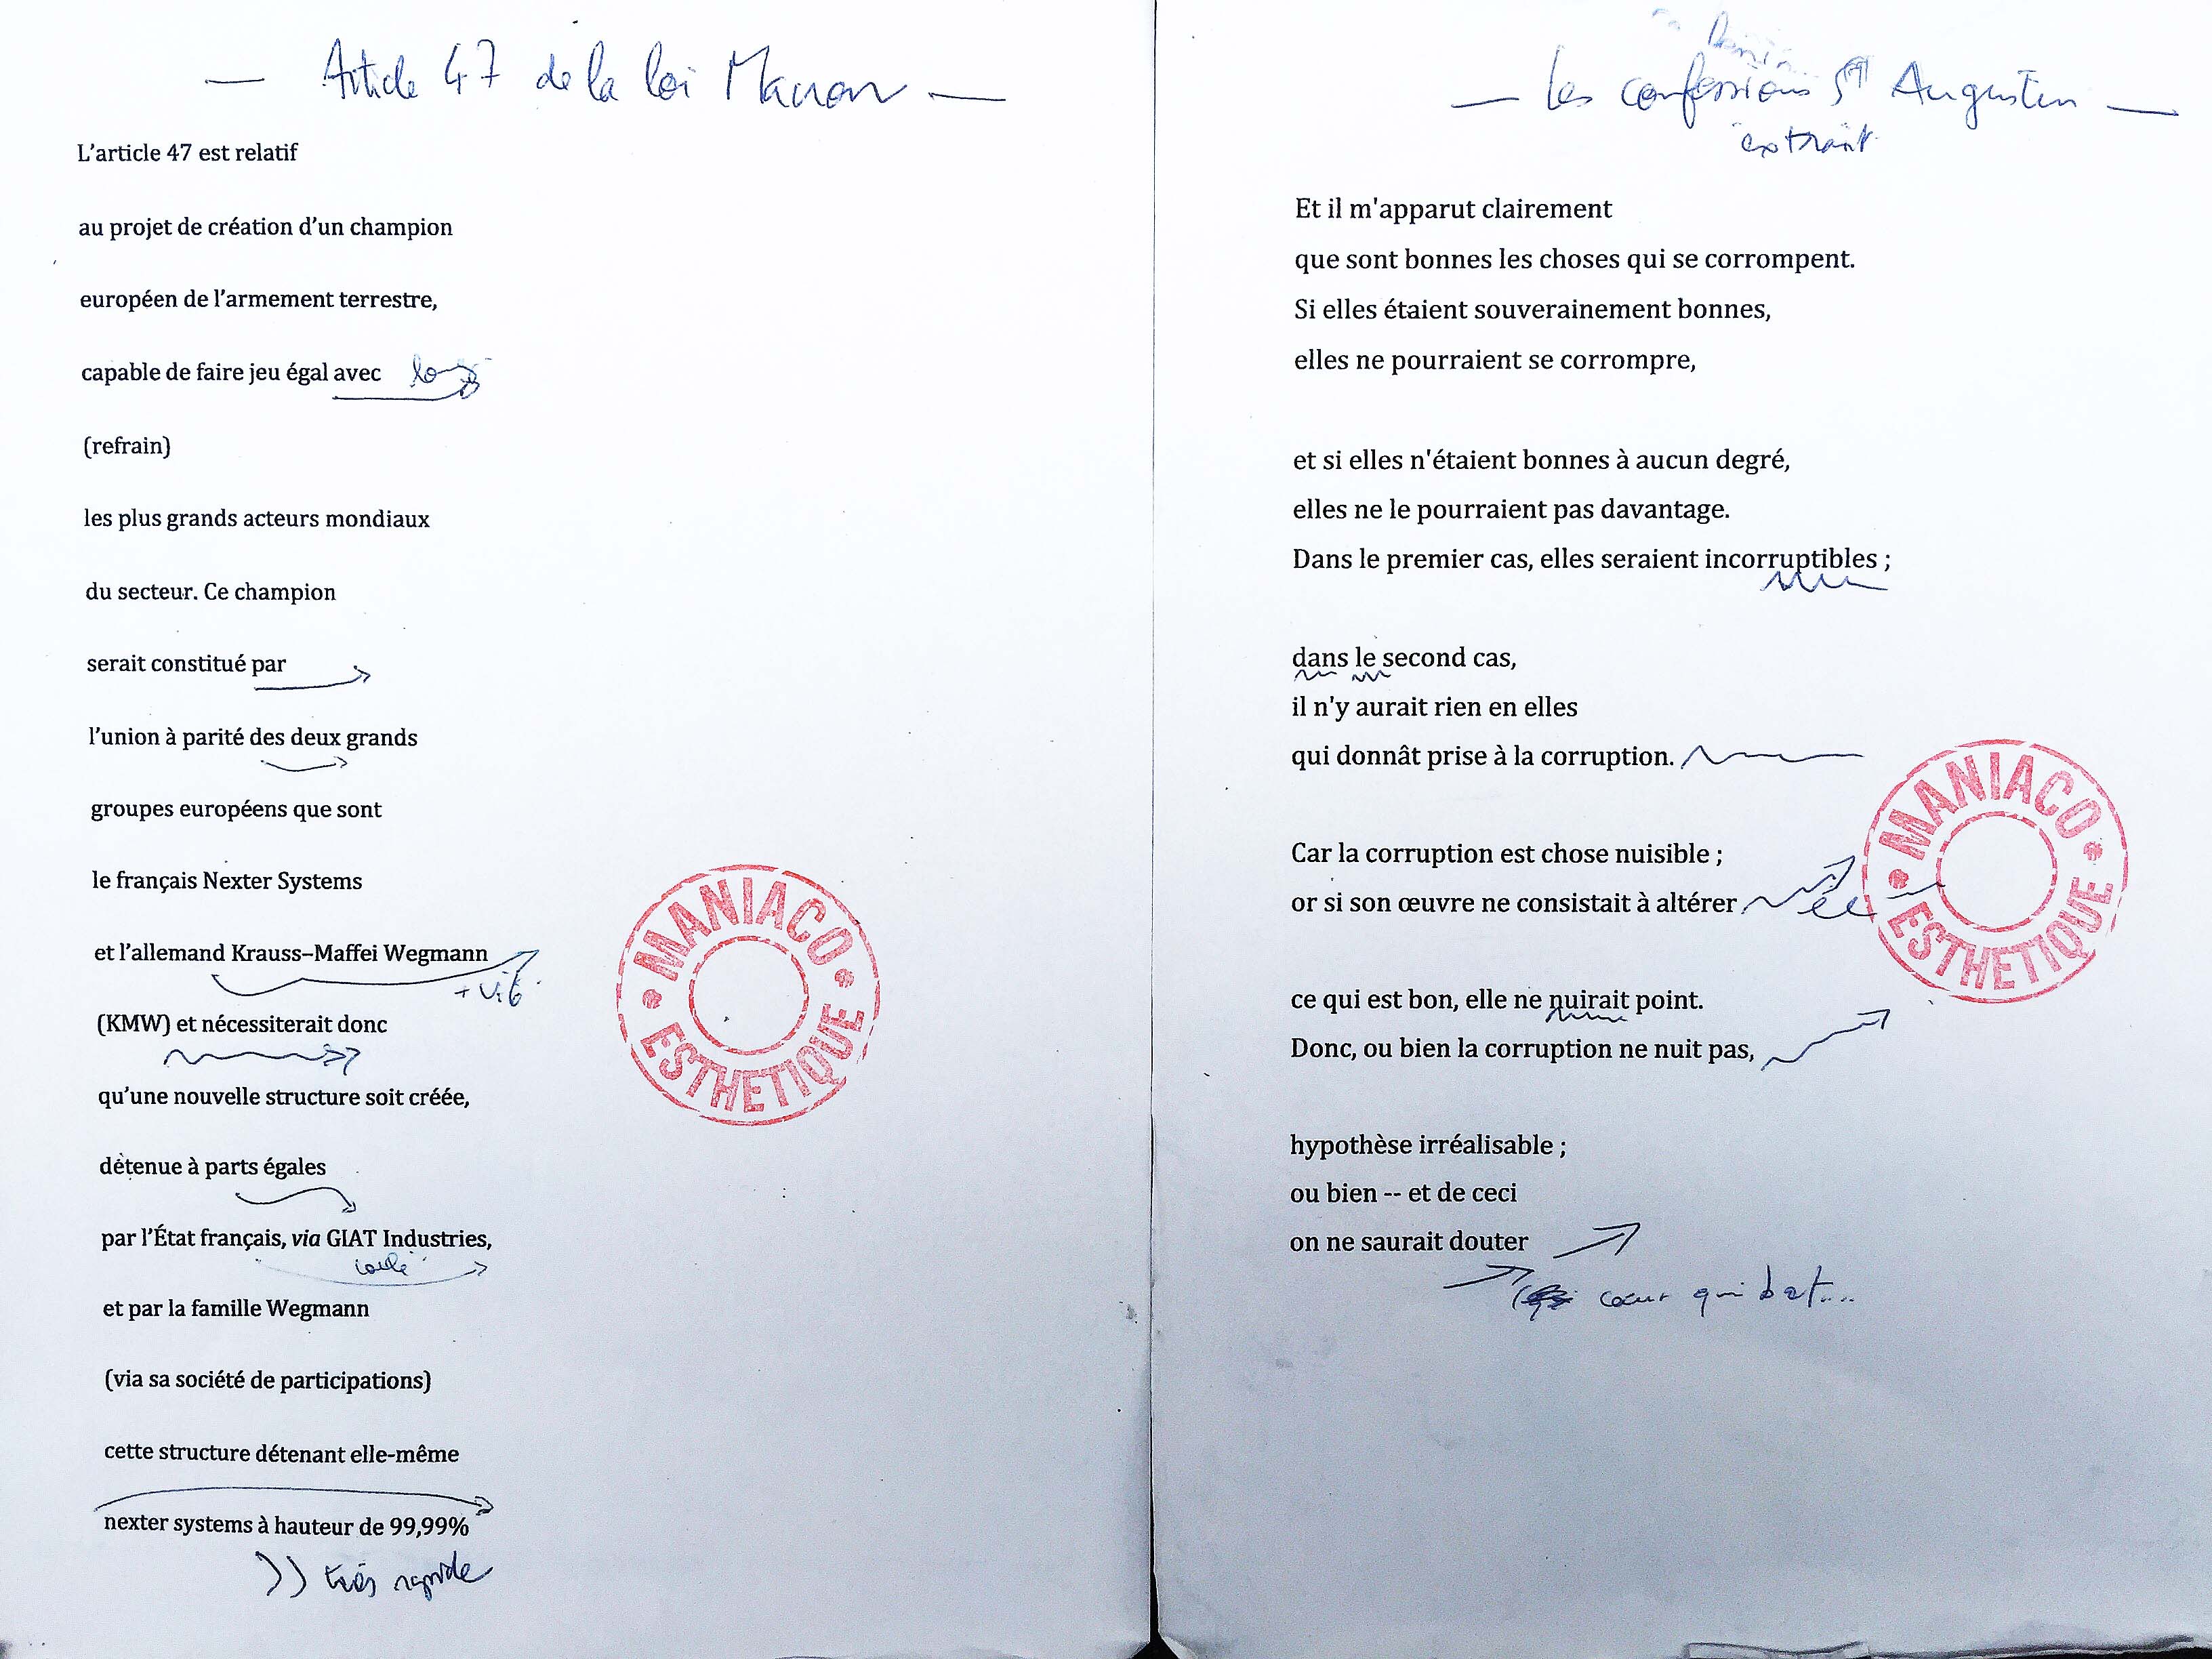 — Article 47 de la loi Macron —
L'article 47 est relatif
au projet de création d'un champion
européen de l'armement terrestre,
capable de faire jeu égal avec
(refrain)
les plus grands acteurs mondiaux
du secteur. Ce champion
serait constitué par
l'union à parité des deux grands
groupes européens que sont
le français Nexter Systems
et l'allemand Krauss–Maffei Wegmann
(KMW) et nécessiterait donc
qu'une nouvelle structure soit créée,
détenue à parts égales
par l'État français, via GIAT Industries,
et par la famille Wegmann
(via sa société de participations)
cette structure détenant elle-même
nexter systems à hauteur de 99,99%
très rapide
MANIACO
ESTHETIQUE
— Les confessions St Augustin —
extrait
Et il m'apparut clairement
que sont bonnes les choses qui se corrompent.
Si elles étaient souverainement bonnes,
elles ne pourraient se corrompre,
et si elles n'étaient bonnes à aucun degré,
elles ne le pourraient pas davantage.
Dans le premier cas, elles seraient incorruptibles ;
dans le second cas,
il n'y aurait rien en elles
qui donnât prise à la corruption.
Car la corruption est chose nuisible ;
or si son œuvre ne consistait à altérer
ce qui est bon, elle ne nuirait point.
Donc, ou bien la corruption ne nuit pas,
hypothèse irréalisable ;
ou bien -- et de ceci
on ne saurait douter
cœur qui bat...
MANIACO
ESTHETIQUE